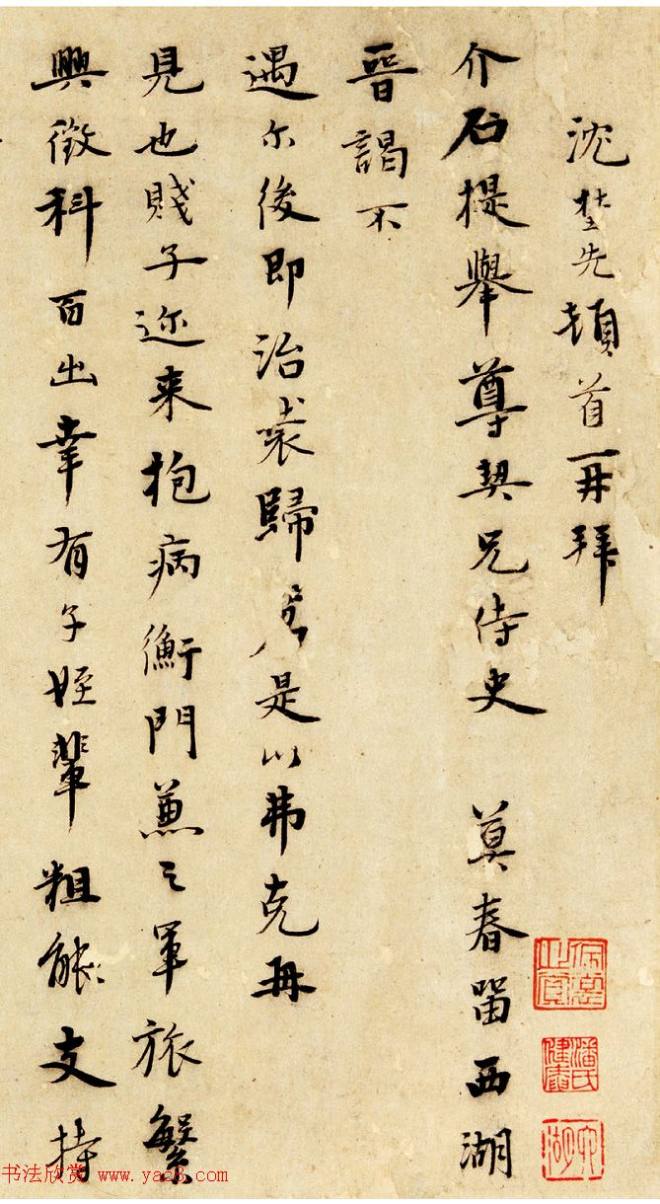 沈埜先頓首再拜
介石提舉尊契兄侍史　莫春留西湖
晉謁不
遇尔後即治裝歸是以弗克再
見也賤子迩来抱病衡門兼之軍旅繁
興徵科百出幸有子姪輩粗能支持
潘氏
书法欣赏 www.yac8.com